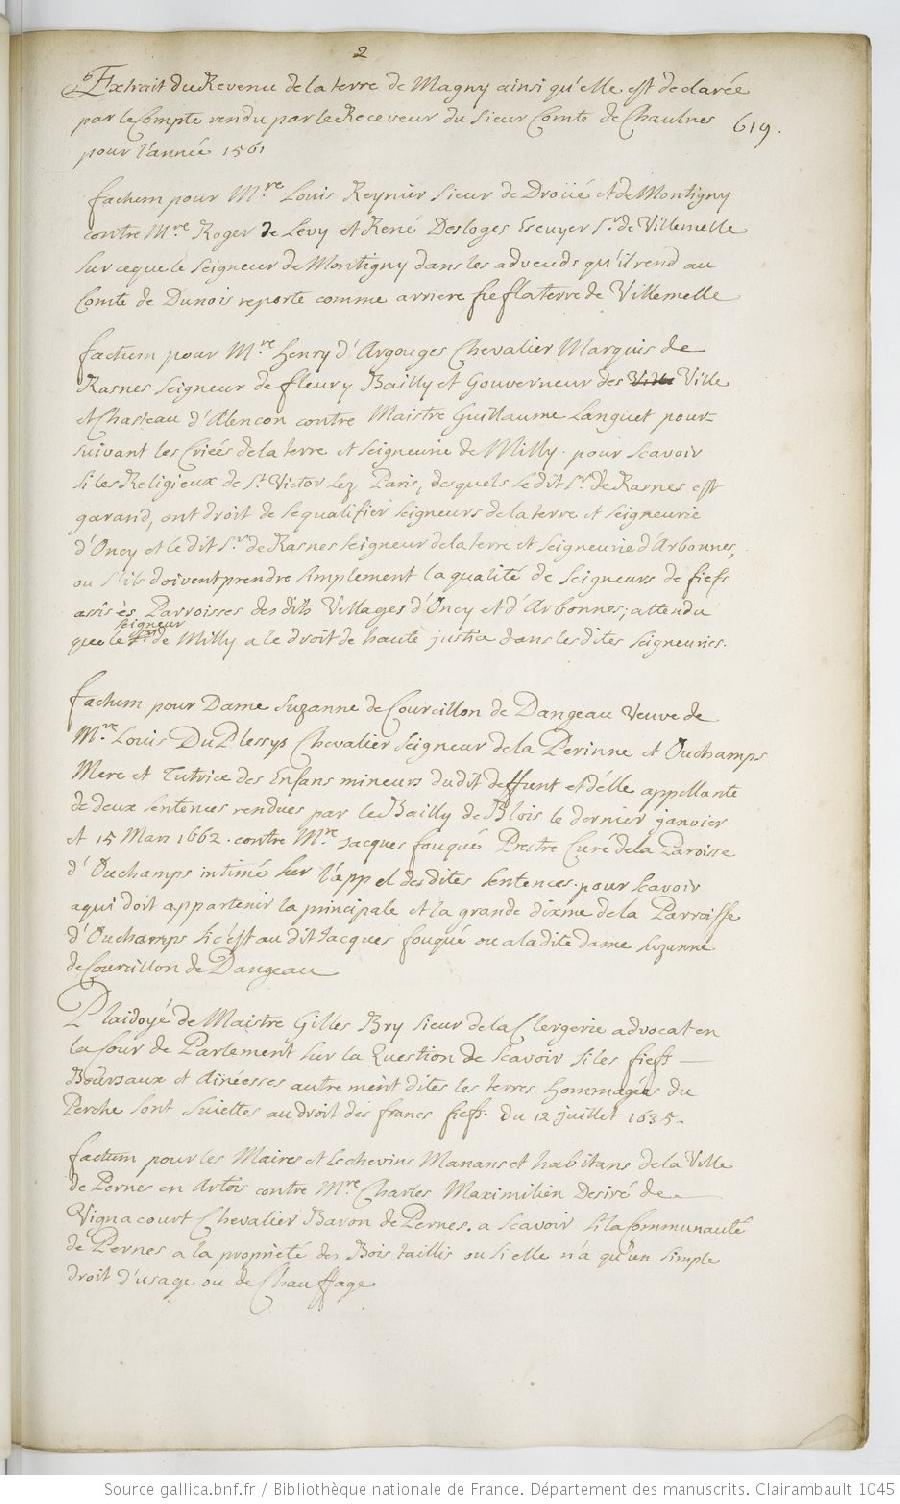 2
Extrait du Revenu de la terre de Magny ainsi qu'elle est declarée
par le Compte rendu par le Receveur du sieur Comte de Chaulnes
619.
pour l'année 1561
factum pour M.re Louis Reynier sieur de Droüé et de Montigny
contre M.re Roger de Levy et René Desloges Escuyer S.r de Villemelle
sur ce que le seigneur de Montigny dans les adveuds qu'il rend au
Comte de Dunois reporte comme arriere fief la terre de Villemelle
factum pour M.re Henry d'Argouges Chevalier Marquis de
Rasnes seigneur de fleury Bailly et Gouverneur des Ville
et Chasteau d'Alencon contre Maistre Guillaume Languet pour-
suivant les Criées de la terre et seigneurie de Milly. pour scavoir
si les Religieux de S.t Victor lez Paris, desquels le dit S.r de Rasnes est
garand, ont droit de se qualifier seigneurs de la terre et seigneurie
d'Oncy et le dit S.r de Rasnes seigneur de la terre et seigneurie d'Arbonnes,
ou s'ils doivent prendre simplement la qualité de seigneurs de fiefs
assis ès Parroisses des dits Villages d'Oncy et d'Arbonnes; attendu
seigneur
que le de Milly a le droit de haute justice dans les dites seigneuries.
factum pour Dame Suzanne de Courcillon de Dangeau Veuve de
M.re Louis Du Plessys Chevalier seigneur de la Perinne et Ouchamps
Mere et Tutrice des Enfans mineurs du dit deffunt et d'elle appellante
de deux sentences rendues par le Bailly de Blois le dernier janvier
et 15 Mars 1662. contre M.re Jacques fouqué Prestre Curé de la Paroisse
d'Ouchamps intimé sur l'appel des dites sentences. pour scavoir
a qui doit appartenir la principale et la grande dixme de la Parroisse
d'Ouchamps si c'est au dit Jacques fouqué ou a la dite dame Suzanne
de Courcillon de Dangeau
Plaidoyé de Maistre Gilles Bry sieur de la Clergerie advocat en
la Cour de Parlement sur la Question de scavoir si les fiefs
Boursaux et Ainéesses autrement dites les terres hommagées du
Perche sont suiettes au droit des francs fiefs. du 12 juillet 1635.
factum pour les Maires et Eschevins Manans et habitans de la Ville
de Pernes en Artois contre M.re Charles Maximilien Desiré de
Vignacourt Chevalier Baron de Pernes. a scavoir si la Communauté
de Pernes a la proprieté des Bois taillis ou si elle n'a qu'un simple
droit d'usage ou de Chauffage
Source gallica.bnf.fr / Bibliothèque nationale de France. Département des manuscrits. Clairambault 1045